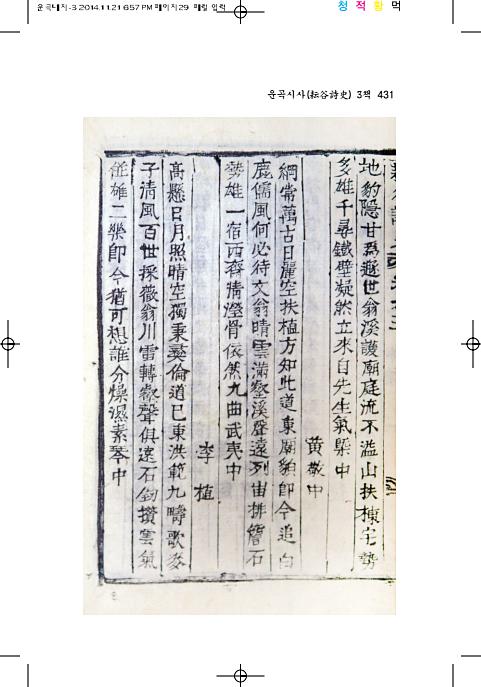 운곡내지-3 2014.11.21 6:57 PM 페이지29 매킬 입력
청 적 황 먹
운곡시사(耘谷詩史) 3책 431
地豹隱甘爲遯世翁溪護廟庭流不濫山扶棟宅勢
多雄千尋鐵壁凝然立來自先生氣槩中
黃敬中
綱常萬古日麗空扶植方知此道東閑貌卽今追白
鹿儒風何必待文翁晴雲滿壑溪聲遠列岫排簷石
勢雄一宿西齋淸澄骨依然九曲武夷中
李植
高懸日月照晴空獨秉彛倫道已東洪範九疇歌麥
子淸風百世採薇翁川雷轉壑聲俱遠石釰攢雲氣
從雄二樂卽今猶可想誰分燥濕素琴中